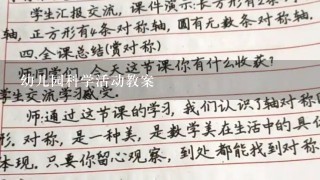 学生汇报交流,课件演示:长方形有2条
轴,正方形有4条对称轴,圆有无数条对称轴.
四.全课总结(赏对称)
今天这节课你有什么收获?
幼儿园科学活动教案
学生交流学习
师:通过这节课的学习,我们认识了轴对称
形.对称,是一种美,是数学美在生活中的具
体现.只要你留心观察,到处都能找到对称